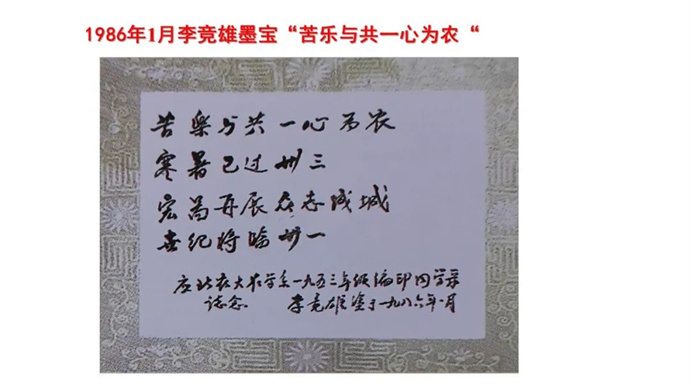 1986年1月李竞雄墨宝“苦乐与共一心为农“
苦樂与共一心为农
寒暑已过卅三
宏啚再展众志成城
世纪将临廿一
应北农大农学系一九五三年级编印同学录
誌念 李竞雄塗于一九八六年一月